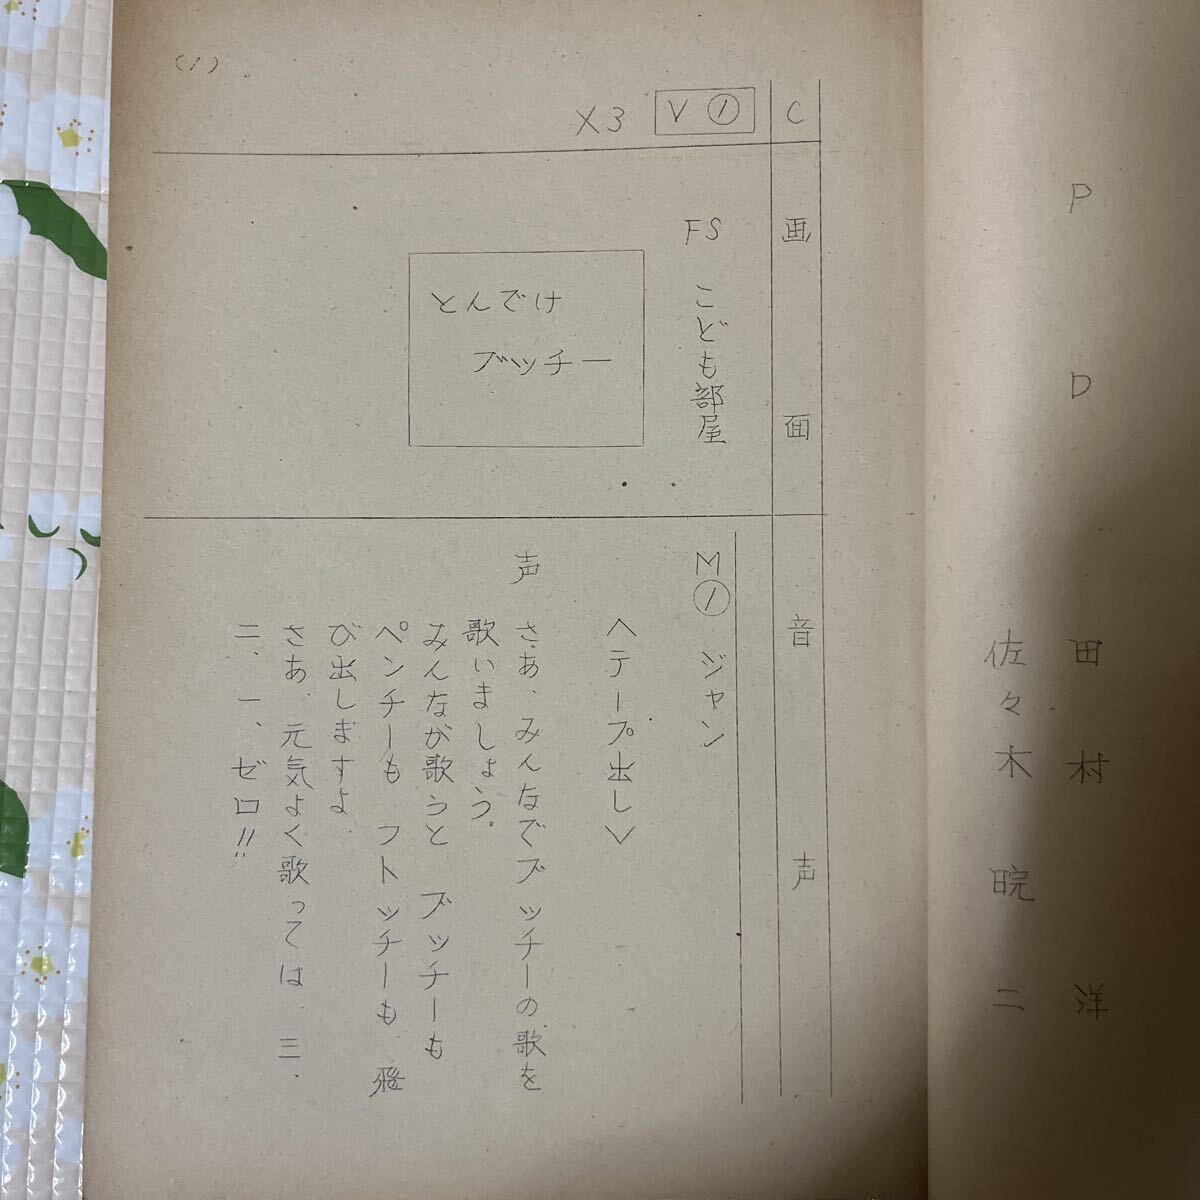 P D 田村 洋
佐々木 晥二
(1)
C 画面 音声
V ①
×3
FS こども部屋
とんでけ
ブッチー
M① ジャン
<テープ出し>
声 さあ、みんなでブッチーの歌を
歌いましょう。
みんなが歌うと ブッチーも
ペンチーも フトッチーも 飛
び出しますよ
さあ、元気よく歌っては 三、
二、一、ゼロ!!